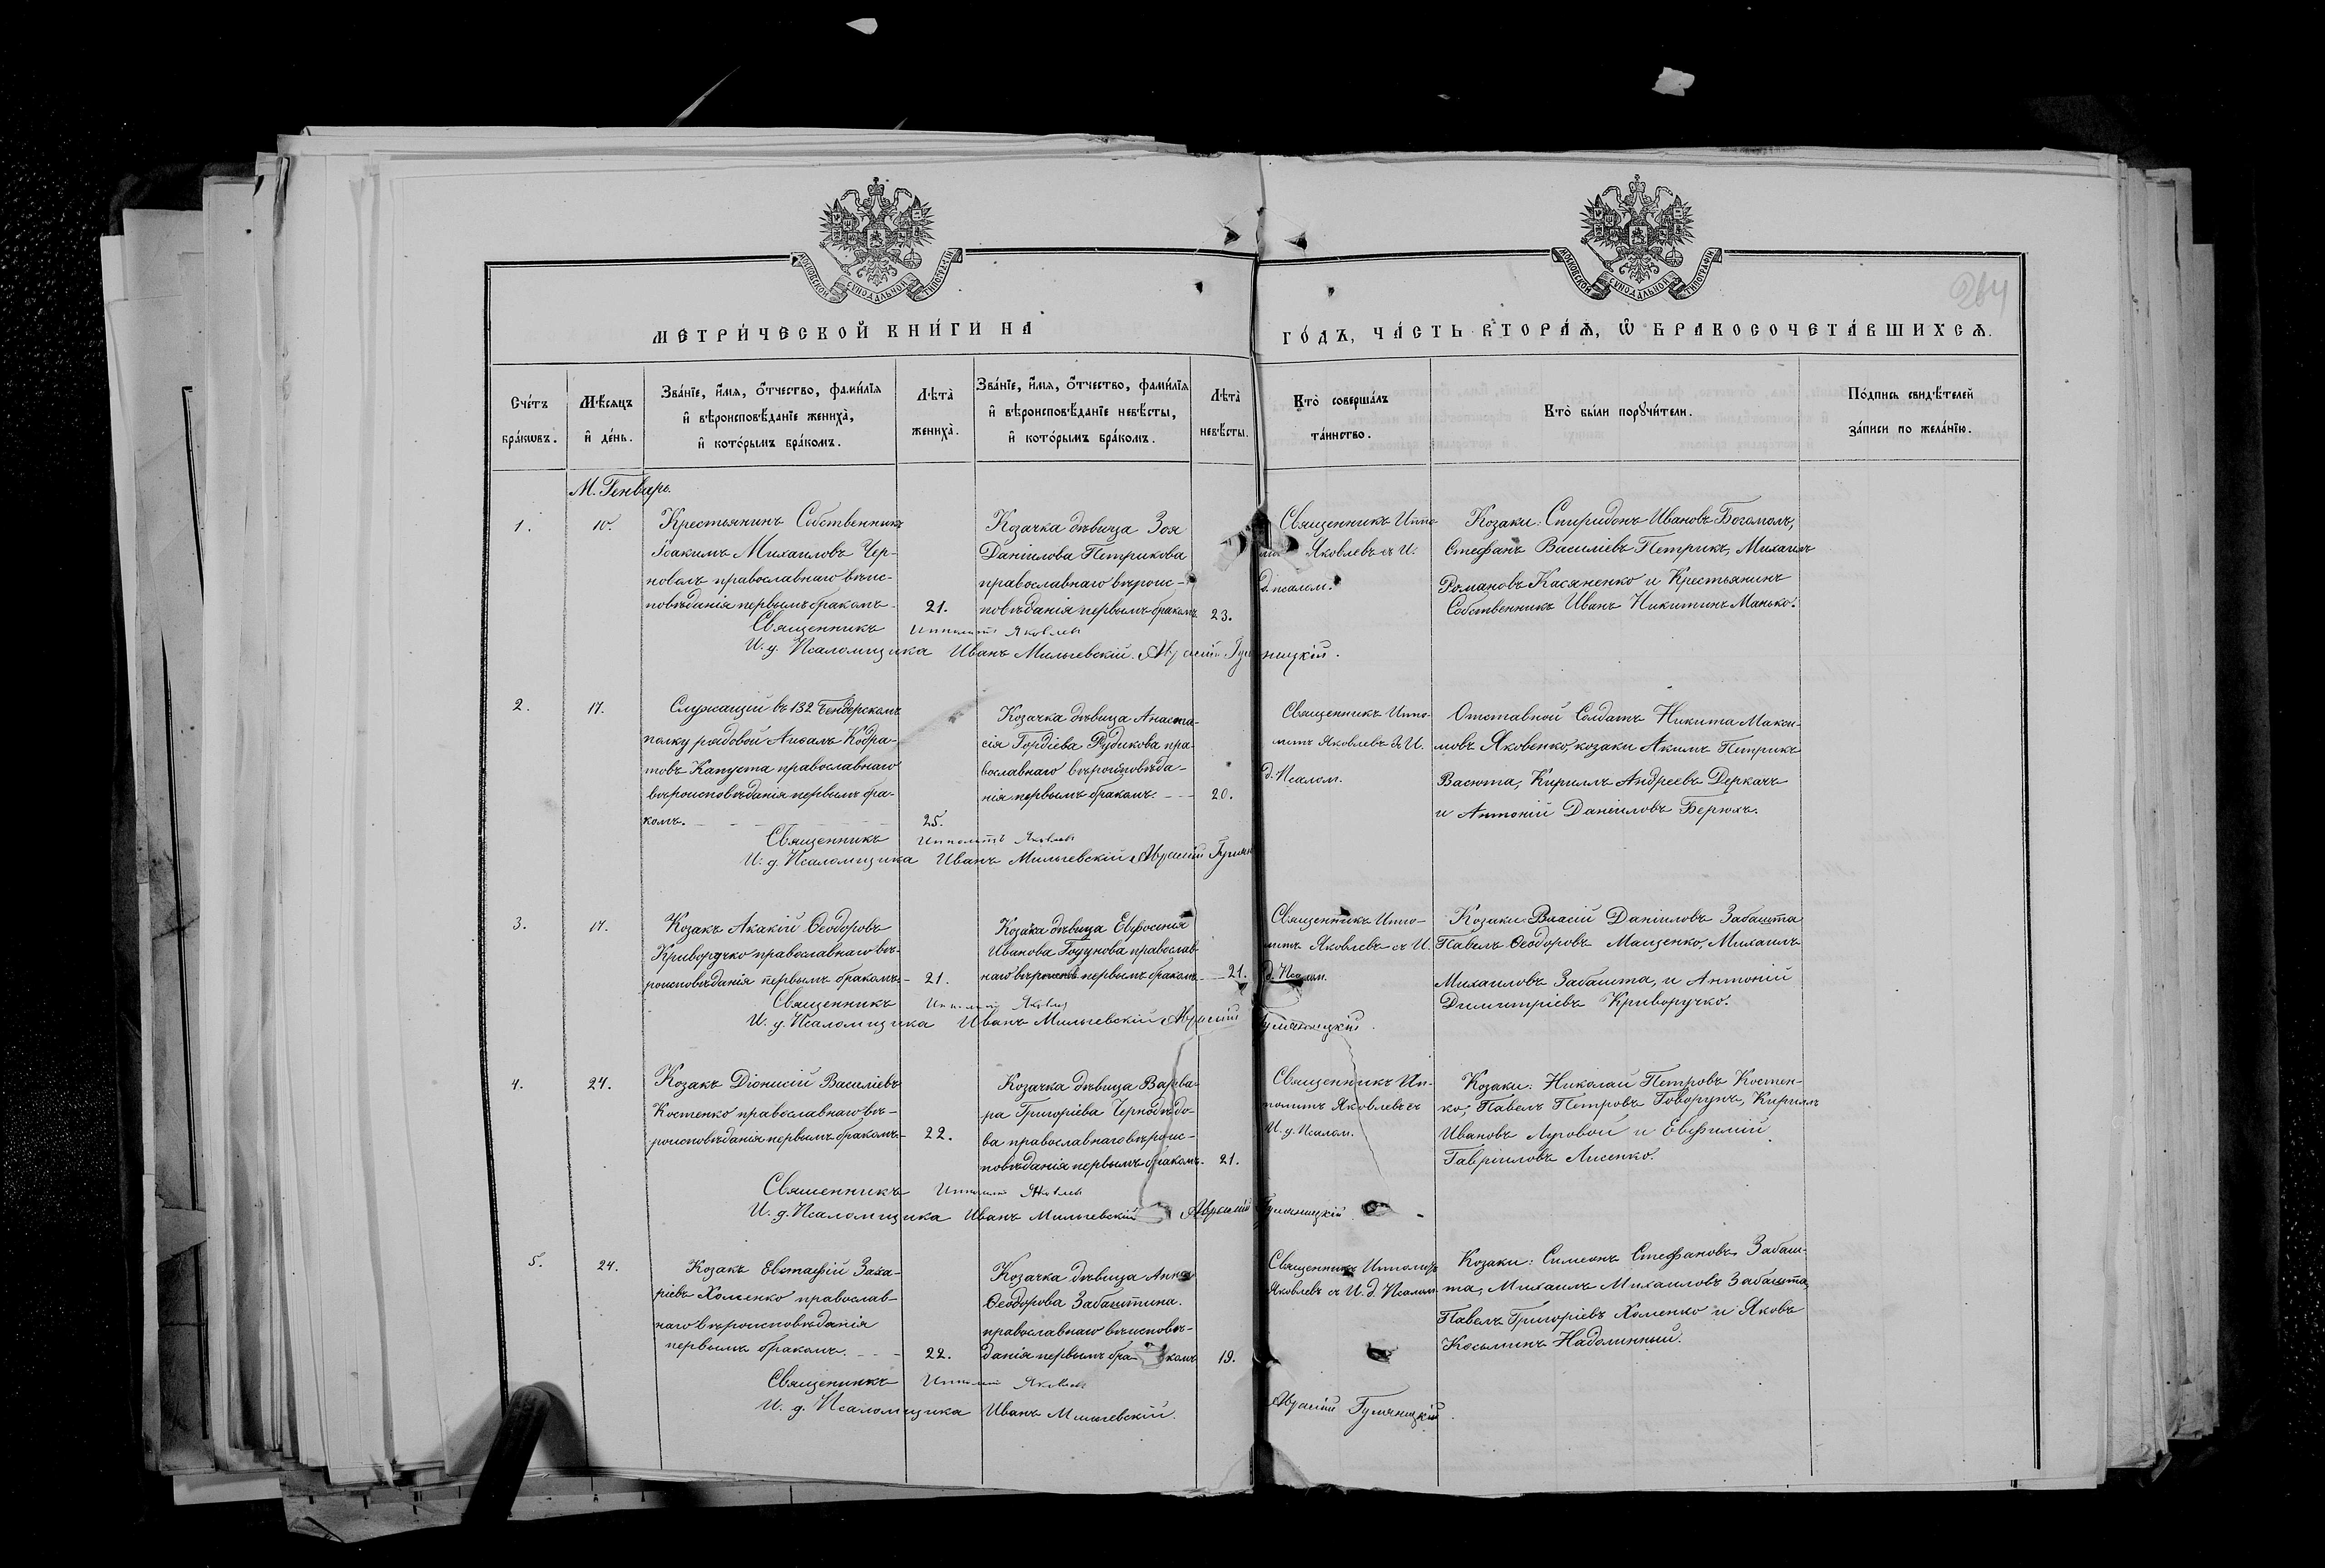 МОСКОВСКОЙ СѴНОДАЛЬНОЙ ТИПОГРАФІИ
МОСКОВСКОЙ СѴНОДАЛЬНОЙ ТИПОГРАФІИ
264
МЕТРИ́ЧЕСКОЙ КНИ́ГИ НА ГО́ДЪ, ЧА́СТЬ ВТОРА́Ѧ, Ѽ БРАКОСОЧЕТА́ВШИХСѦ.
Сче́тъ бра́кѡвъ.
Мѣ́сяцъ и҆ де́нь.
Зва́нїе, и҆́мя, ѻ҆́тчество, фами́лїя
и҆ вѣроисповѣ́данїе жениха̀,
и҆ кото́рымъ бра́комъ.
Лѣ́та̀ жениха̀.
Зва́нїе, и҆́мя, ѻ҆́тчество, фами́лїя
и҆ вѣроисповѣ́данїе невѣ́сты,
и҆ кото́рымъ бра́комъ.
Лѣ́та̀ невѣ́сты.
Кто̀ соверша́лъ та́инство.
Кто̀ бы́ли порꙋчи́тели.
По́дпись свидѣ́телей
за́писи по жела́нїю.
М. Генварь.
1.
10.
Крестьянинъ Собственникъ
Іоакимъ Михаиловъ Чер-
православнаго вѣис-
повѣданія первымъ бракомъ
21.
Козачка дѣвица Зоя
Даніилова Петрикова
православнаго вѣроис-
повѣданія первымъ бракомъ
23.
Священникъ Иппо-
Яковлевъ съ И.
д. псалом.
Козаки: Спиридонъ Ивановъ Богомолъ,
Стефанъ Василіевъ Петрикъ, Михаилъ
Романовъ Касяненко и Крестьянинъ
Собственникъ Иванъ Никитинъ Манько.
Священникъ Ипполитъ Яковлевъ
И. д. Псаломщика Иванъ Мильевскій.
2.
17.
Служащій въ 132 Бендерскомъ
полку рядовой Кодра-
товъ Капуста православнаго
вѣроисповѣданія первымъ бра-
комъ.
25.
Козачка дѣвица Анаста-
сія Гордіева Рудикова пра-
вославнаго вѣроисповѣда-
нія первымъ бракомъ.
20.
Священникъ Иппо-
литъ Яковлевъ съ И.
д. Псалом.
Отставной Солдатъ Никита Макси-
мовъ Яковенко, козаки Акимъ Петрикъ
Васюта, Кириллъ Андреевъ Деркачъ
и Антоній Даніиловъ Берюхъ.
Священникъ Ипполитъ Яковлевъ
И. д. Псаломщика Иванъ Мильевскій
3.
17.
Козакъ Акакій Ѳеодоровъ
Криворучко православнаго вѣ-
роисповѣданія первымъ бракомъ
21.
Козачка дѣвица Евфросинія
Иванова Годунова православ-
наго вѣроисповѣ первымъ бракомъ
21.
Священникъ Иппо-
литъ Яковлевъ съ И.
д. Псалом.
Козаки: Власій Даніиловъ Забашта
Павелъ Ѳеодоровъ Мащенко, Михаилъ
Михаиловъ Забашта, и Антоній
Димитріевъ Криворучко.
Священникъ Ипполитъ Яковлевъ
И. д. Псаломщика Иванъ Мильевскій
4.
24.
Козакъ Діонисій Василіевъ
Костенко православнаго вѣ-
роисповѣданія первымъ бракомъ
22.
Козачка дѣвица Варва-
ра Григоріева Чернодѣдо-
ва православнаго вѣроис-
повѣданія первымъ бракомъ.
21.
Священникъ Ип-
политъ Яковлевъ съ
И. д. Псалом.
Козаки: Николай Петровъ Костен-
ко, Павелъ Петровъ Говорунъ, Кириллъ
Ивановъ Луговой и Евфимій
Гавріиловъ Лисенко.
Священникъ Ипполитъ Яковлевъ
И. д. Псаломщика Иванъ Мильевскій
5.
24.
Козакъ Евстафій Заха-
ріевъ Хоменко православ-
наго вѣроисповѣданія
первымъ бракомъ.
22.
Козачка дѣвица Анна
Ѳеодорова Забаштина.
православнаго вѣисповѣ-
данія первымъ бракомъ
19.
Священникъ Ипполитъ
Яковлевъ съ И. д. Псалом.
Козаки: Симеонъ Стефановъ Забаш-
та, Михаилъ Михаиловъ Забашта,
Павелъ Григоріевъ Хоменко и Яковъ
Косьминъ Надолинный.
Священникъ Ипполитъ Яковлевъ
И. д. Псаломщика Иванъ Мильевскій.